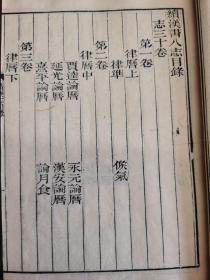 續漢書八志目錄
志三十卷
第一卷
律曆上
律準 候氣
第二卷
律曆中
賈逵論曆 永元論曆
延光論曆 漢安論曆
熹平論曆 論月食
第三卷
律曆下